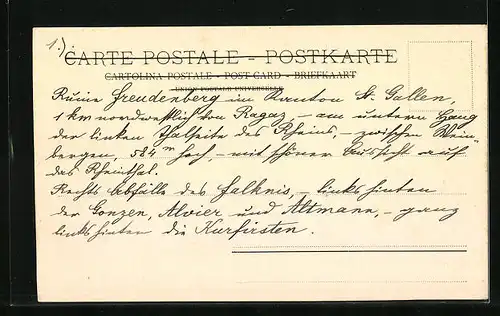 1.)
CARTE POSTALE - POSTKARTE
CARTOLINA POSTALE - POST-CARD - BRIEFKAART
UNION POSTALE UNIVERSELLE
Ruine Freudenberg im Kanton St. Gallen,
1 km nordwestlich von Ragaz, - am untern Hang
der linken Thalseite des Rheins, - zwischen Wein
bergen, 584 m hoch, - mit schöner Aussicht auf
das Rheinthal.
Rechts Abfälle des Falknis, - links hinten
der Gonzen, Alvier und Altmann, - ganz
links hinten die Kurfirsten.